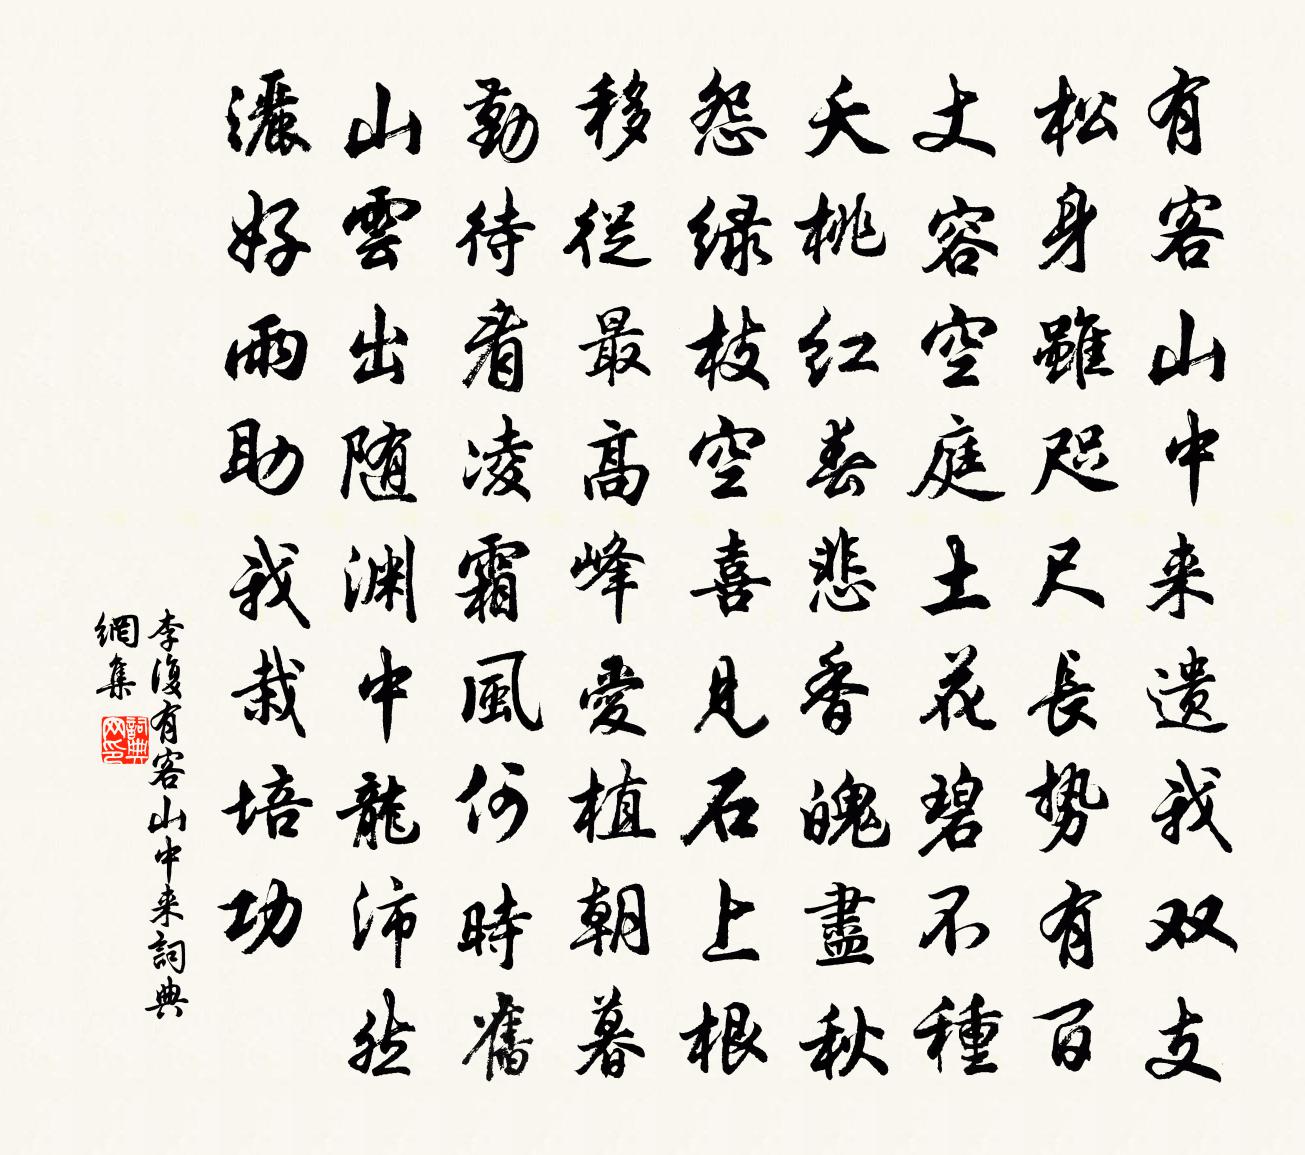 有客山中来遗我双支
松身雖咫尺長勢有百
丈容空庭土花碧不種
夭桃红春悲香魄盡秋
怨绿枝空喜見石上根
移從最高峰愛植朝暮
勤待看凌霜風何時舊
山雲出随渊中龍沛然
灑好雨助我栽培功
李復有客山中来詞典
網集
詞典
网印